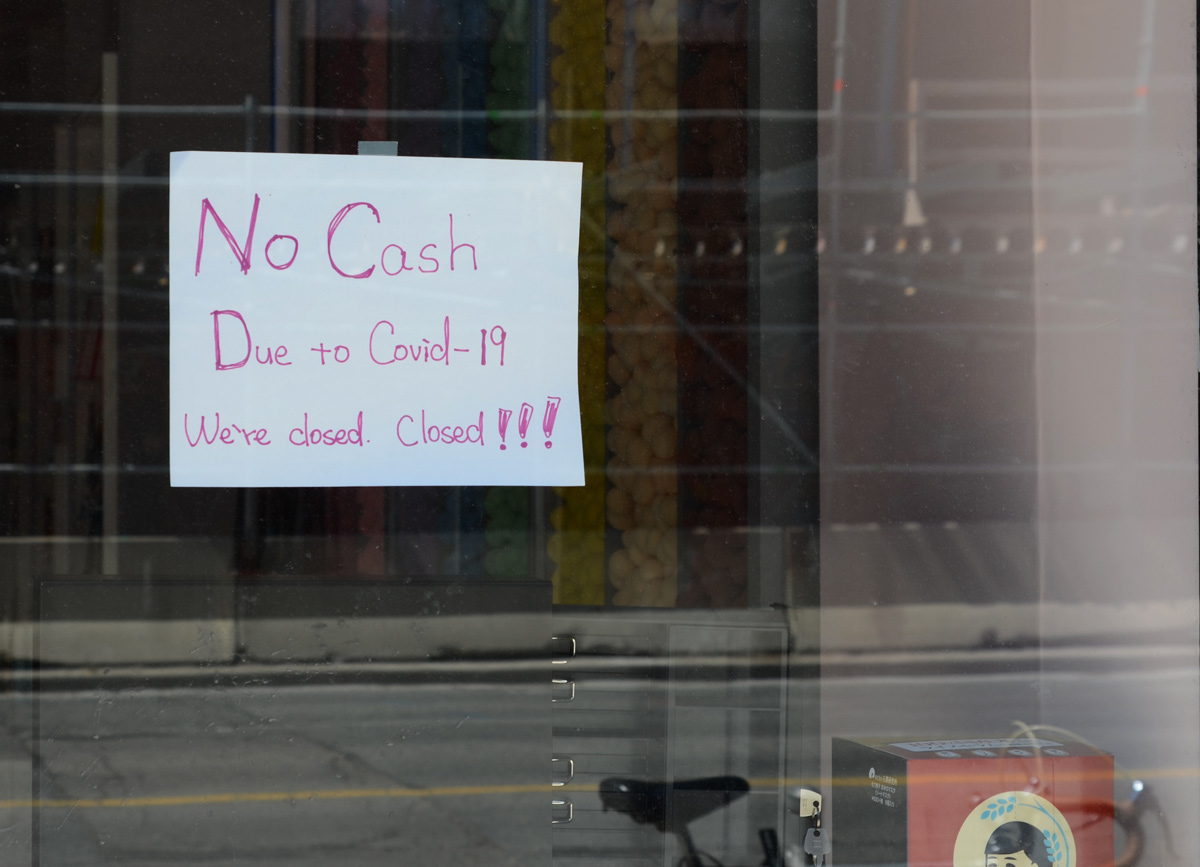 No Cash
Due to Covid-19
We're closed. Closed!!!